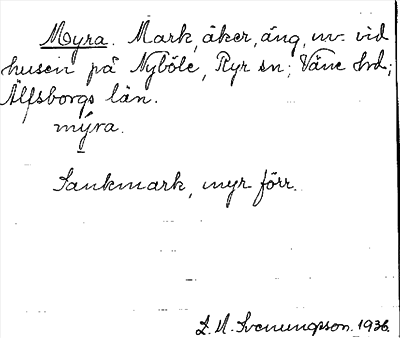 Myra. Mark, åker, äng, nv. vid
husen på Nyböle, Ryr sn; Väne hrd;
Älfsborgs län.
mýra.
Sankmark, myr förr.
L. A. Svenungsson. 1936.